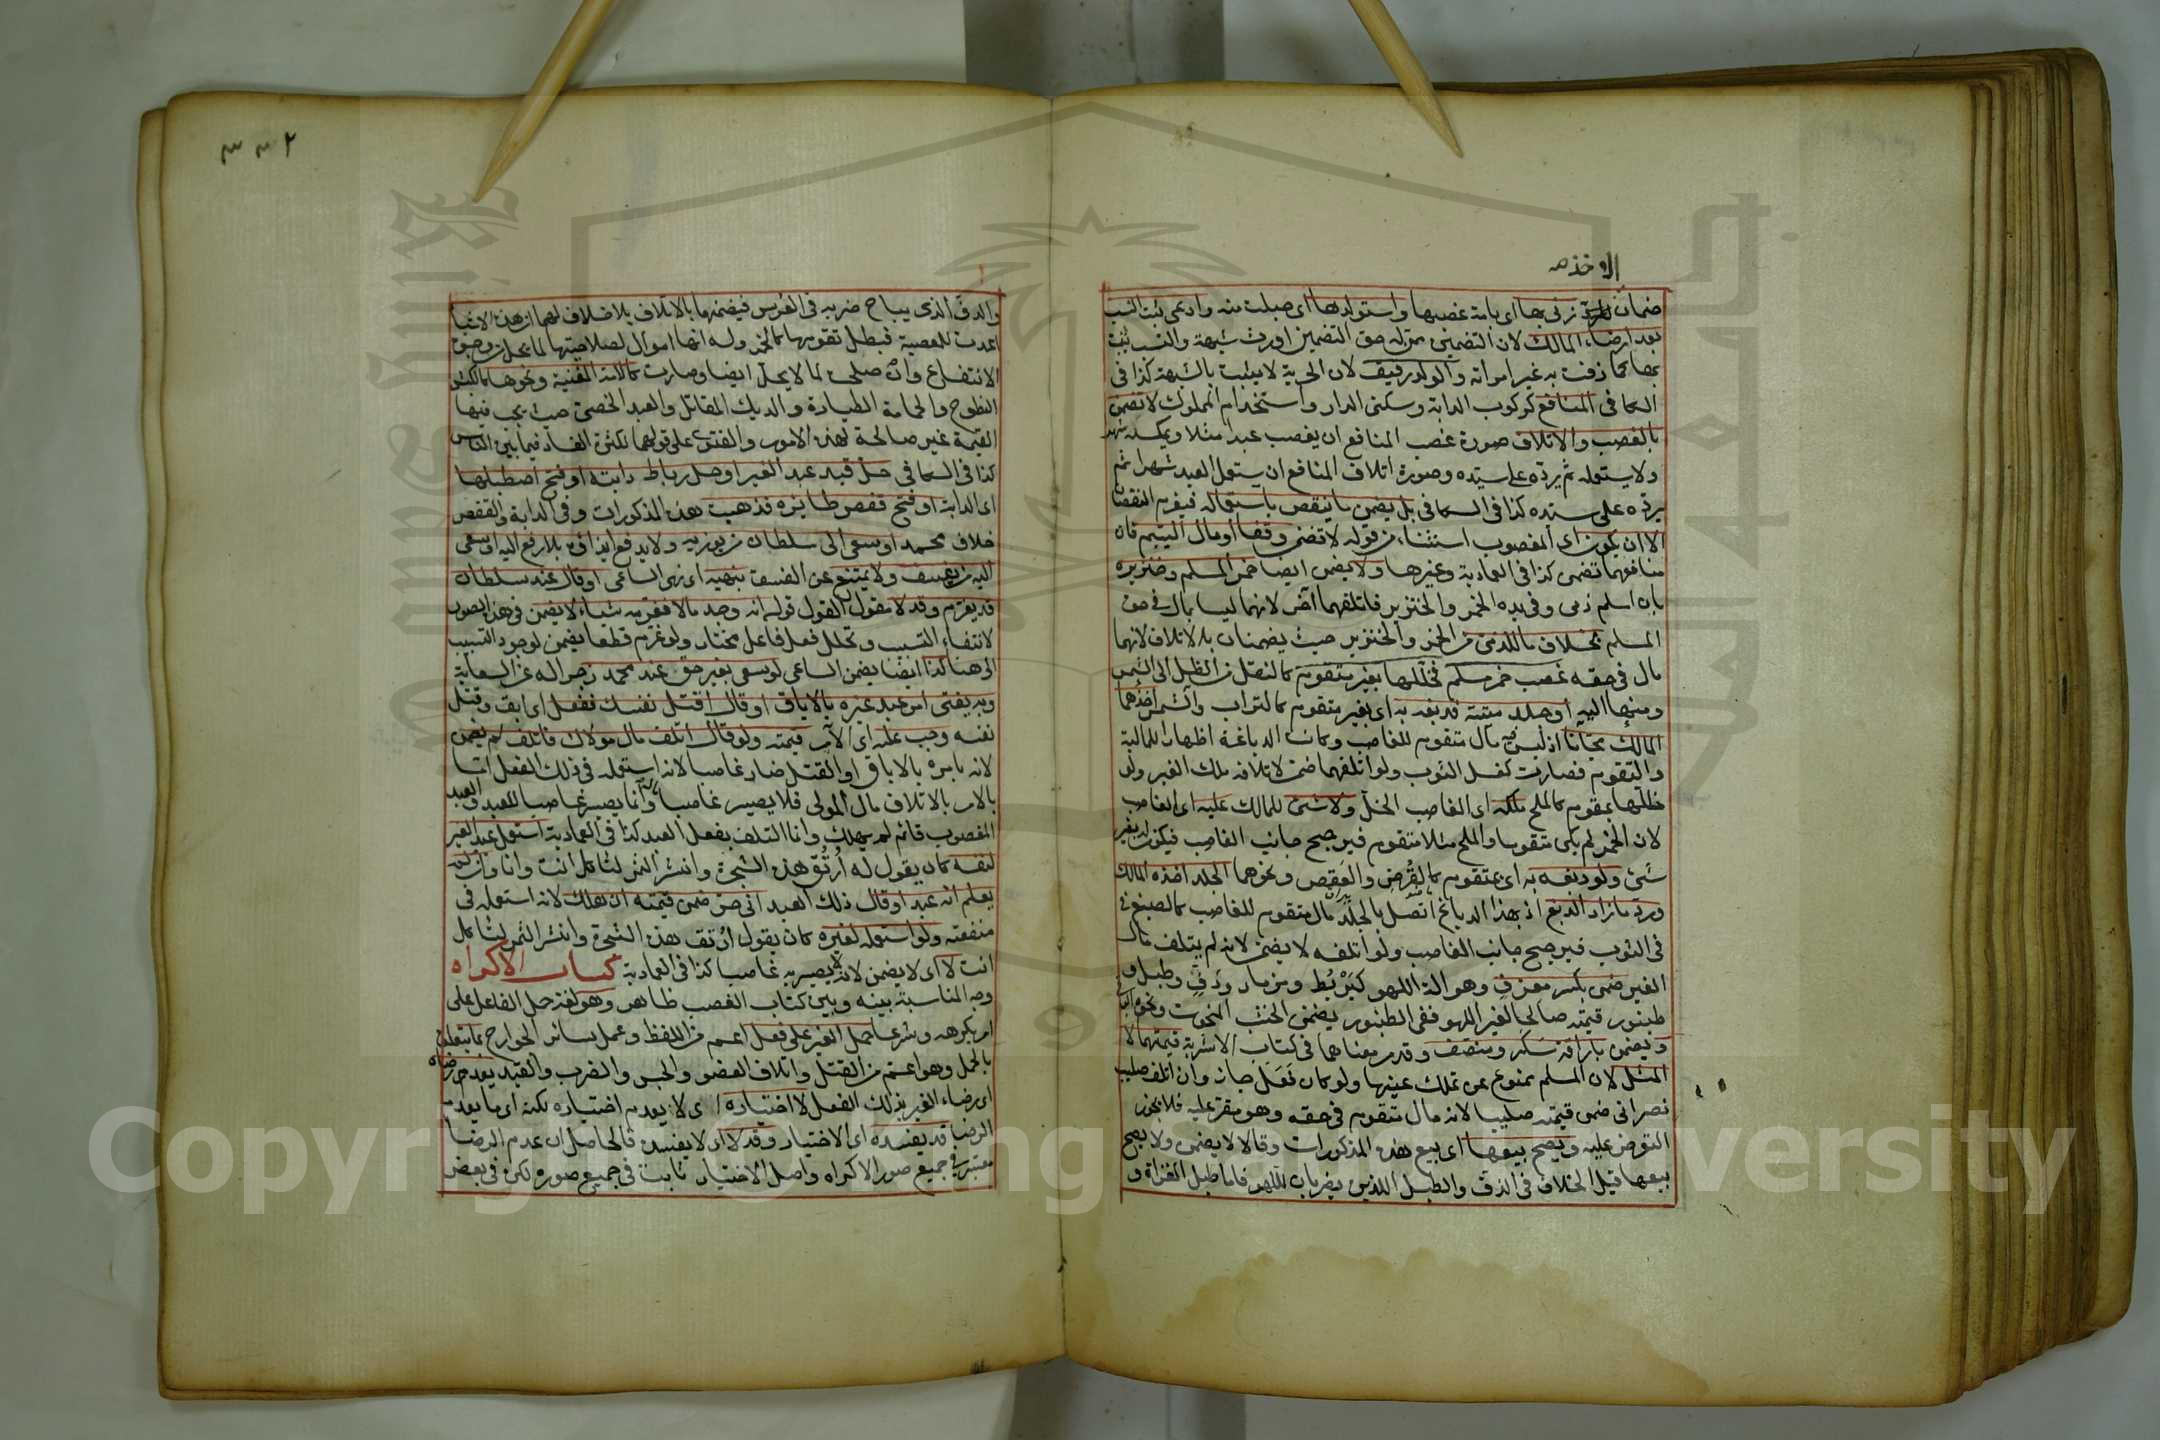 الاخذ صح
ضمان الرد زنى بها اى بامة غصبها واستولدها اى حبلت منه وادعى ثبت النسب
بعد ارضاء المالك لان التضمين بمنزلة حق التضمين اورث شبهة والنسب يثبت
بها كما زفت به غير امراته والولد رقيق لان الحرية لا يثبت بالشبهة كذا فى
الكافى المنافع كركوب الدابة وسكنى الدار واستخدام المملوك لا تضمن
بالغصب والاتلاف صورة غصب المنافع ان يغصب عبدا مثلا ويمسكه شهرا
ولا يستعمله ثم يرده على سيده وصورة اتلاف المنافع ان يستعمل العبد شهرا ثم
يرده على سيده كذا فى الكافى بل يضمن ما ينقص باستعماله فيغرم النقصان
الا ان يكون اى المغصوب استثناء من قوله لا تضمن وقفا او مال اليتيم فان
منافعهما تضمن كذا فى العمادية وغيرها ولا يضمن ايضا خمر المسلم وخنزيره
بان اسلم ذمى وفى يده الخمر والخنزير فاتلفهما آخر لانهما ليسا بمال فى حق
المسلم بخلاف ما للذمى من الخمر والخنزير حيث يضمنان بالاتلاف لانهما
مال فى حقه غصب خمر مسلم فخللها بغير متقوم كالنقل من الظل الى الشمس
ومنها اليه او جلد ميتة فدبغه به اى بغير متقوم كالتراب والشمس اخذهما
المالك مجانا اذ ليس فيه مال متقوم للغاصب وكانت الدباغة اظهارا للمالية
والتقوم فصارت كغسل الثوب ولو اتلفهما ضمن لاتلافه ملك الغير ولو
خللها بمتقوم كالملح ملكه اى الغاصب الخل ولا شئ للمالك عليه اى الغاصب
لان الخمر لم يكن متقوما والملح مثلا متقوم فيرجح جانب الغاصب فيكون له بغير
شئ ولو دبغه به اى بمتقوم كالقرض والعفص ونحوهما الجلد اخذه المالك
ورد ما زاد الدبغ اذ بهذا الدباغ اتصل بالجلد مال متقوم للغاصب كالصبغ
فى الثوب فيرجح جانب الغاصب ولو اتلفه لا يضمن لانه لم يتلف مال
الغير ضمن بكسر معزف وهو الة اللهو كبربط ومزمار ودف وطبل و
طنبور قيمته صالحا لغير اللهو ففى الطنبور يضمن الخشب المنحوت ونحوه
ويضمن باراقة سكر ومنصف وقد مر معناهما فى كتاب الاشربة قيمتهما لا
المثل لان المسلم ممنوع عن تملك عينها ولو كان فعل جاز وان اتلف صليب
نصرانى ضمن قيمته صليبا لانه مال متقوم فى حقه وهو مقر عليه فلا يجوز
التعرض عليه ويصح بيعها اى بيع هذه المذكورات وقالا لا يضمن ولا يصح
بيعها قيل الخلاف فى الدف والطبل اللذين يضربان للهو فاما طبل الغزاة و
٣٣٢
والدف الذى يباح ضربه فى العرس فيضمنهما بالاتلاف بلا خلاف لهما ان هذه الاشياء
اعدت للمعصية فبطل تقومها كالخمر وله انها اموال لصلاحيتها لما يحل من وجوه
الانتفاع وان صلحت لما لا يحل ايضا وصارت كالامة المغنية ونحوها كالكبش
النطوح والحمامة الطيارة والديك المقاتل والعبد الخصى حيث يجب فيها
القيمة غير صالحة لهذه الامور والفتوى على قولهما لكثرة الفساد فيما بين الناس
كذا فى الكافى حل قيد عبد الغير او حل رباط دابته او فتح اصطبلها
اى الدابة او فتح قفص طائره فذهبت هذه المذكورات وفى الدابة والقفص
خلاف محمد او سعى الى سلطان من يوذيه ولا يدفع ايذاؤه بلا رفع اليه او سعى
اليه من يفسق ولا يمتنع عن الفسق بنهيه اى نهى الساعى او قال عند سلطان
قد يغرم وقد لا مقول القول قوله انه وجد مالا فغرمه شياء لا يضمن فى هذه الصور
لانتفاء التسبب وتخلل فعل فاعل مختار ولو غرم قطعا يضمن لوجود التسبيب
الى هنا كذا ايضا يضمن الساعى لو سعى بغير حق عند محمد زجرا له عن السعاية
وبه يفتى امر عبد غيره بالاباق او قال اقتل نفسك ففعل اى ابق وقتل
نفسه وجب عليه اى الآمر قيمته ولو قال اتلف مال مولاك فاتلف لم يضمن
لانه بامره بالاباق او القتل صار غاصبا لانه استعمله فى ذلك الفعل اما
بالامر بالاتلاف مال المولى فلا يصير غاصبا وانما يصير غاصبا للعبد والعبد
المغصوب قائم لم يهلك وانما التلف بفعل العبد كذا فى العمادية استعمل عبد الغير
لنفسه كان يقول له ارتق هذه الشجرة وانثر الثمر لتاكل انت وانا وان لم
يعلم انه عبد او قال ذلك العبد انى حر ضمن قيمته ان هلك لانه استعمله فى
منفعته ولو استعمله لغيره كان يقول ارتق هذه الشجرة وانثر الثمر لتاكل
انت لا اى لا يضمن لانه لا يصير به غاصبا كذا فى العمادية كتاب الاكراه
وجه المناسبة بينه وبين كتاب الغصب ظاهر وهو لغة حمل الفاعل على
امر يكرهه وشرعا حمل الغير على فعل اعم من اللفظ وعمل سائر الجوارح بما يتعلق
بالحمل وهو اعم من القتل واتلاف العضو والحبس والضرب والقيد يعدم رضاه
اى رضاء الغير بذلك الفعل لا اختياره اى لا يعدم اختياره لكنه اى ما يعدم
الرضا قد يفسده اى الاختيار وقد لا اى لا يفسده فالحاصل ان عدم الرضا
معتبر فى جميع صور الاكراه واصل الاختيار ثابت فى جميع صوره لكن فى بعض
Copyright © King Saud University